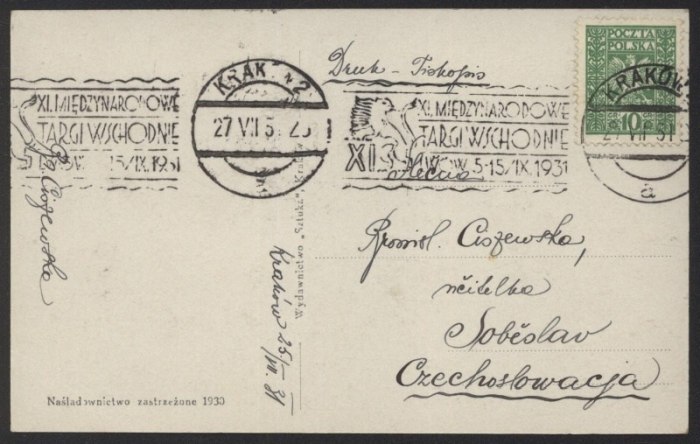 Druk - Tiskopis
POCZTA
POLSKA
10
KRAK 2
27 VII
XI. MIĘDZYNARODOWE
TARGI WSCHODNIE
5-15/IX.1931
XI. MIĘDZYNARODOWE
TARGI WSCHODNIE
LWÓW 5-15/IX.1931
XI
KRAKÓW
VII 31
a
Ciszewska,
učitelka
Soběslav
Czechosłowacja
Ciszewska
Kraków 25/VII. 31
Wydawnictwo „Sztuka” Kraków
Naśladownictwo zastrzeżone 1930